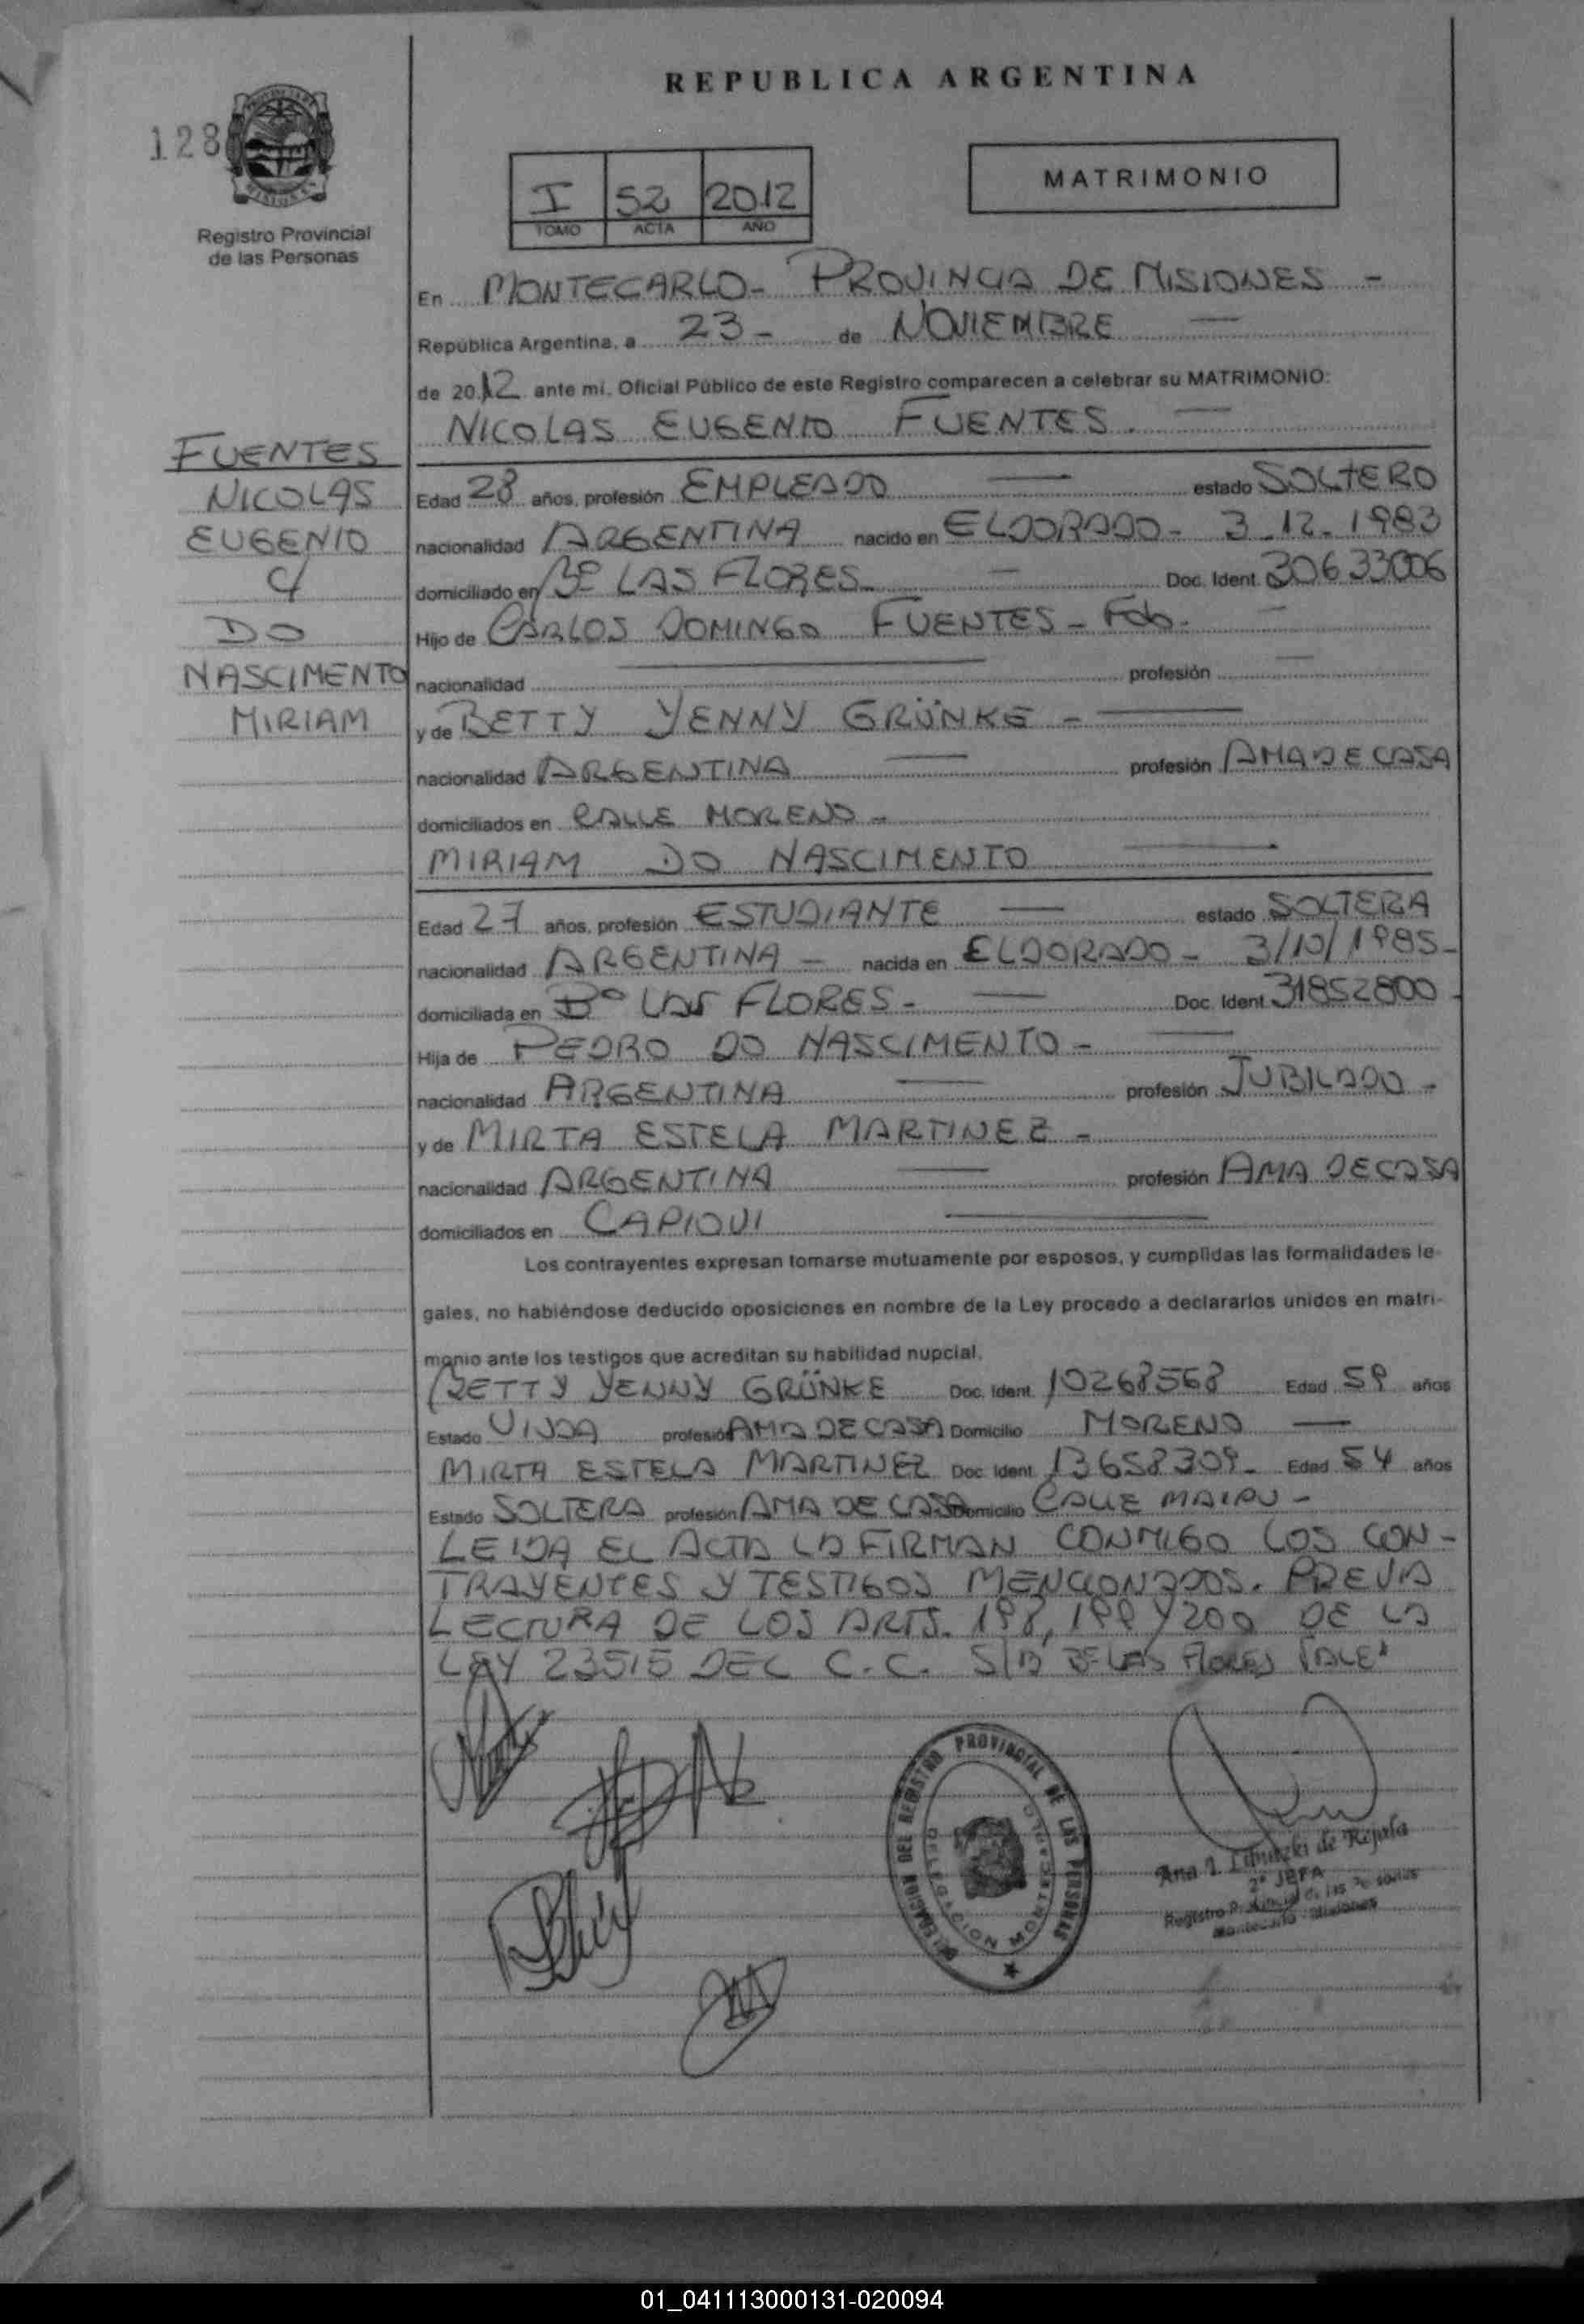 REPUBLICA ARGENTINA
128
Registro Provincial
de las Personas
I 52 2012
TOMO ACTA AÑO
MATRIMONIO
En MONTECARLO - PROVINCIA DE MISIONES -
República Argentina, a 23 - de NOVIEMBRE
de 2012 ante mi, Oficial Público de este Registro comparecen a celebrar su MATRIMONIO:
NICOLAS EUGENIO FUENTES.
FUENTES
NICOLAS
EUGENIO
C/
DO
NASCIMENTO
MIRIAM
Edad 28 años, profesión EMPLEADO estado SOLTERO
nacionalidad ARGENTINA nacido en ELDORADO - 3.12.1983
domiciliado en Bº LAS FLORES - Doc. Ident. 30633006
Hijo de CARLOS DOMINGO FUENTES - Fdo.
nacionalidad profesión
y de BETTY YENNY GRÜNKE -
nacionalidad ARGENTINA profesión AMA DE CASA
domiciliados en CALLE MORENO -
MIRIAM DO NASCIMENTO
Edad 27 años, profesión ESTUDIANTE estado SOLTERA
nacionalidad ARGENTINA - nacida en ELDORADO - 3/10/1985 -
domiciliada en Bº LAS FLORES - Doc. Ident. 31852800 -
Hija de PEDRO DO NASCIMENTO -
nacionalidad ARGENTINA profesión JUBILADO -
y de MIRTA ESTELA MARTINEZ -
nacionalidad ARGENTINA profesión AMA DE CASA
domiciliados en CAPIOVI
Los contrayentes expresan tomarse mutuamente por esposos, y cumplidas las formalidades le-
gales, no habiéndose deducido oposiciones en nombre de la Ley procedo a declararlos unidos en matri-
monio ante los testigos que acreditan su habilidad nupcial.
BETTY YENNY GRÜNKE Doc. Ident. 10268568 Edad 59 años
Estado VIUDA profesión AMA DE CASA Domicilio MORENO
MIRTA ESTELA MARTINEZ Doc. Ident. 13658309 - Edad 54 años
Estado SOLTERA profesión AMA DE CASA Domicilio CALLE MAIPU -
LEIDA EL ACTA LA FIRMAN CONMIGO LOS CON-
TRAYENTES Y TESTIGOS MENCIONADOS. PREVIA
LECTURA DE LOS ARTS. 198, 199 Y 200 DE LA
LEY 23515 DEL C.C. S/B Bº LAS FLORES VALE"
DELEGACION DEL REGISTRO PROVINCIAL DE LAS PERSONAS
DELEGACION MONTECARLO
Ana I. de Rejala
2º JEFA
Registro Provincial de las Personas
Montecarlo - Misiones
01_041113000131-020094